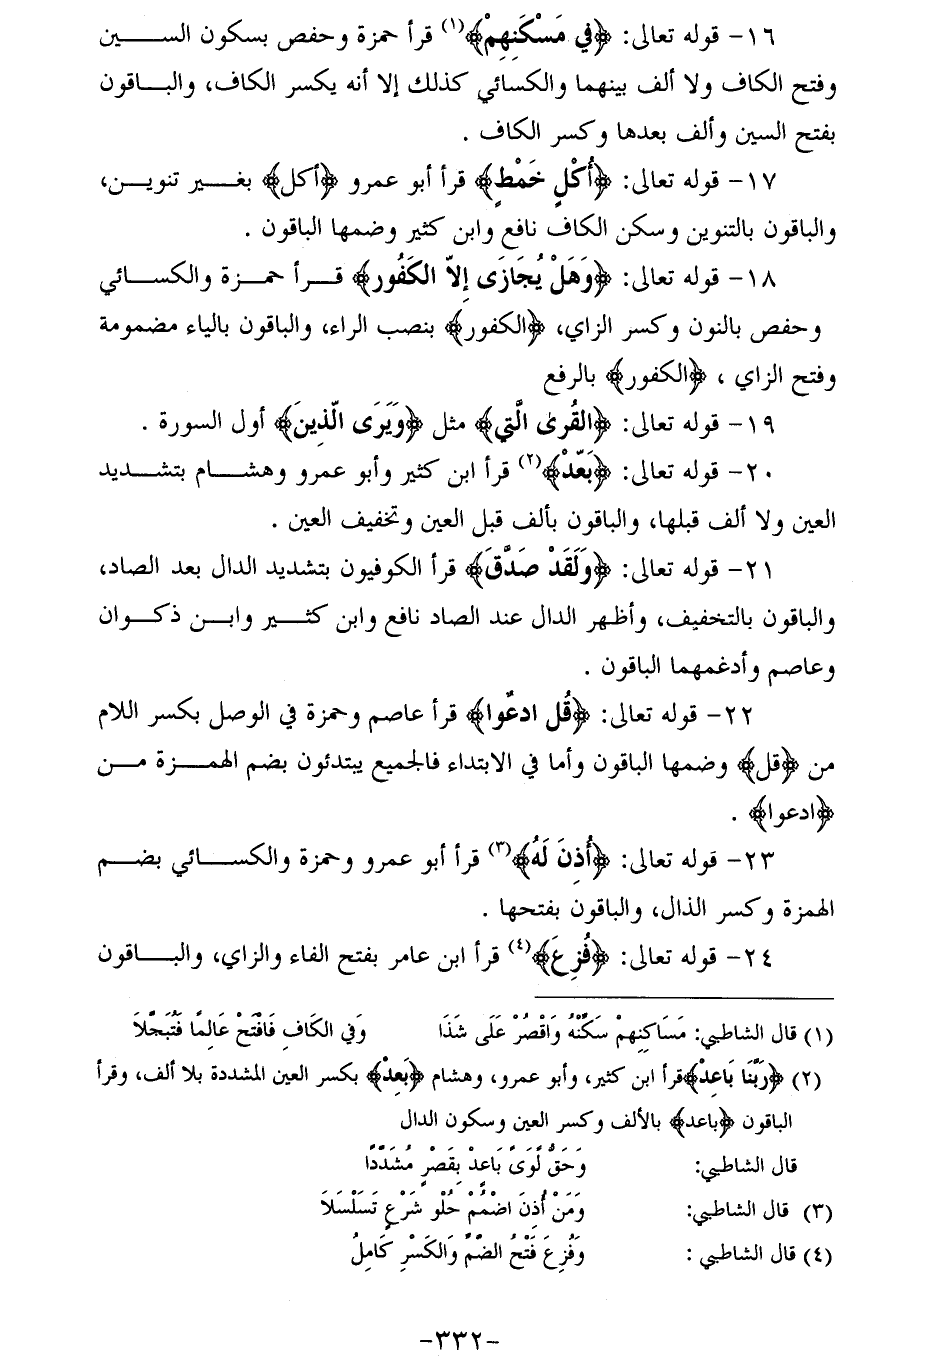 ١٦- قوله تعالى: ﴿في مَسْكَنِهِمْ﴾(١) قرأ حمزة وحفص بسكون السين
وفتح الكاف ولا ألف بينهما والكسائي كذلك إلا أنه يكسر الكاف، والباقون
بفتح السين وألف بعدها وكسر الكاف .
١٧- قوله تعالى: ﴿أُكْلٍ خَمْطٍ﴾ قرأ أبو عمرو ﴿أكل﴾ بغير تنوين،
والباقون بالتنوين وسكن الكاف نافع وابن كثير وضمها الباقون .
١٨- قوله تعالى: ﴿وَهَلْ يُجَازَى إِلاّ الكَفُور﴾ قرأ حمزة والكسائي
وحفص بالنون وكسر الزاي، ﴿الكفور﴾ بنصب الراء، والباقون بالياء مضمومة
وفتح الزاي ، ﴿الكفور﴾ بالرفع
١٩- قوله تعالى: ﴿القُرىٰ الَّتي﴾ مثل ﴿وَيَرَى الّذِينَ﴾ أول السورة .
٢٠- قوله تعالى: ﴿بَعّدْ﴾(٢) قرأ ابن كثير وأبو عمرو وهشام بتشديد
العين ولا ألف قبلها، والباقون بألف قبل العين وتخفيف العين .
٢١- قوله تعالى: ﴿وَلَقَدْ صَدَّقَ﴾ قرأ الكوفيون بتشديد الدال بعد الصاد،
والباقون بالتخفيف، وأظهر الدال عند الصاد نافع وابن كثير وابن ذكوان
وعاصم وأدغمهما الباقون .
٢٢- قوله تعالى: ﴿قُل ادعُوا﴾ قرأ عاصم وحمزة في الوصل بكسر اللام
من ﴿قل﴾ وضمها الباقون وأما في الابتداء فالجميع يبتدئون بضم الهمزة من
﴿ادعوا﴾ .
٢٣- قوله تعالى: ﴿أُذِنَ لَهُ﴾(٣) قرأ أبو عمرو وحمزة والكسائي بضم
الهمزة وكسر الذال، والباقون بفتحها .
٢٤- قوله تعالى: ﴿فُزِعَ﴾(٤) قرأ ابن عامر بفتح الفاء والزاي، والباقون
(١) قال الشاطبي: مَسَاكِنِهِمْ سَكِّنْهُ وَاقْصُرْ عَلَى شَذَا وَفي الكَافِ فَافْتَحْ عَالِمًا فَتُبَجَّلاَ
(٢) ﴿رَبَّنَا بَاعِدْ﴾ قرأ ابن كثير، وأبو عمرو، وهشام ﴿بَعِدْ﴾ بكسر العين المشددة بلا ألف، وقرأ
الباقون ﴿باعد﴾ بالألف وكسر العين وسكون الدال
قال الشاطبي: وَحَقُّ لِوَىً بَاعِدْ بِقَصْرٍ مُشَدَّدًا
(٣) قال الشاطبي: وَمَنْ أُذِنَ اضْمُمْ حُلْوَ شَرْعٍ تَسَلْسَلاَ
(٤) قال الشاطبي : وَفُزِعَ فَتْحُ الضَّمِّ وَالكَسْرِ كَامِلُ
-٣٣٢-